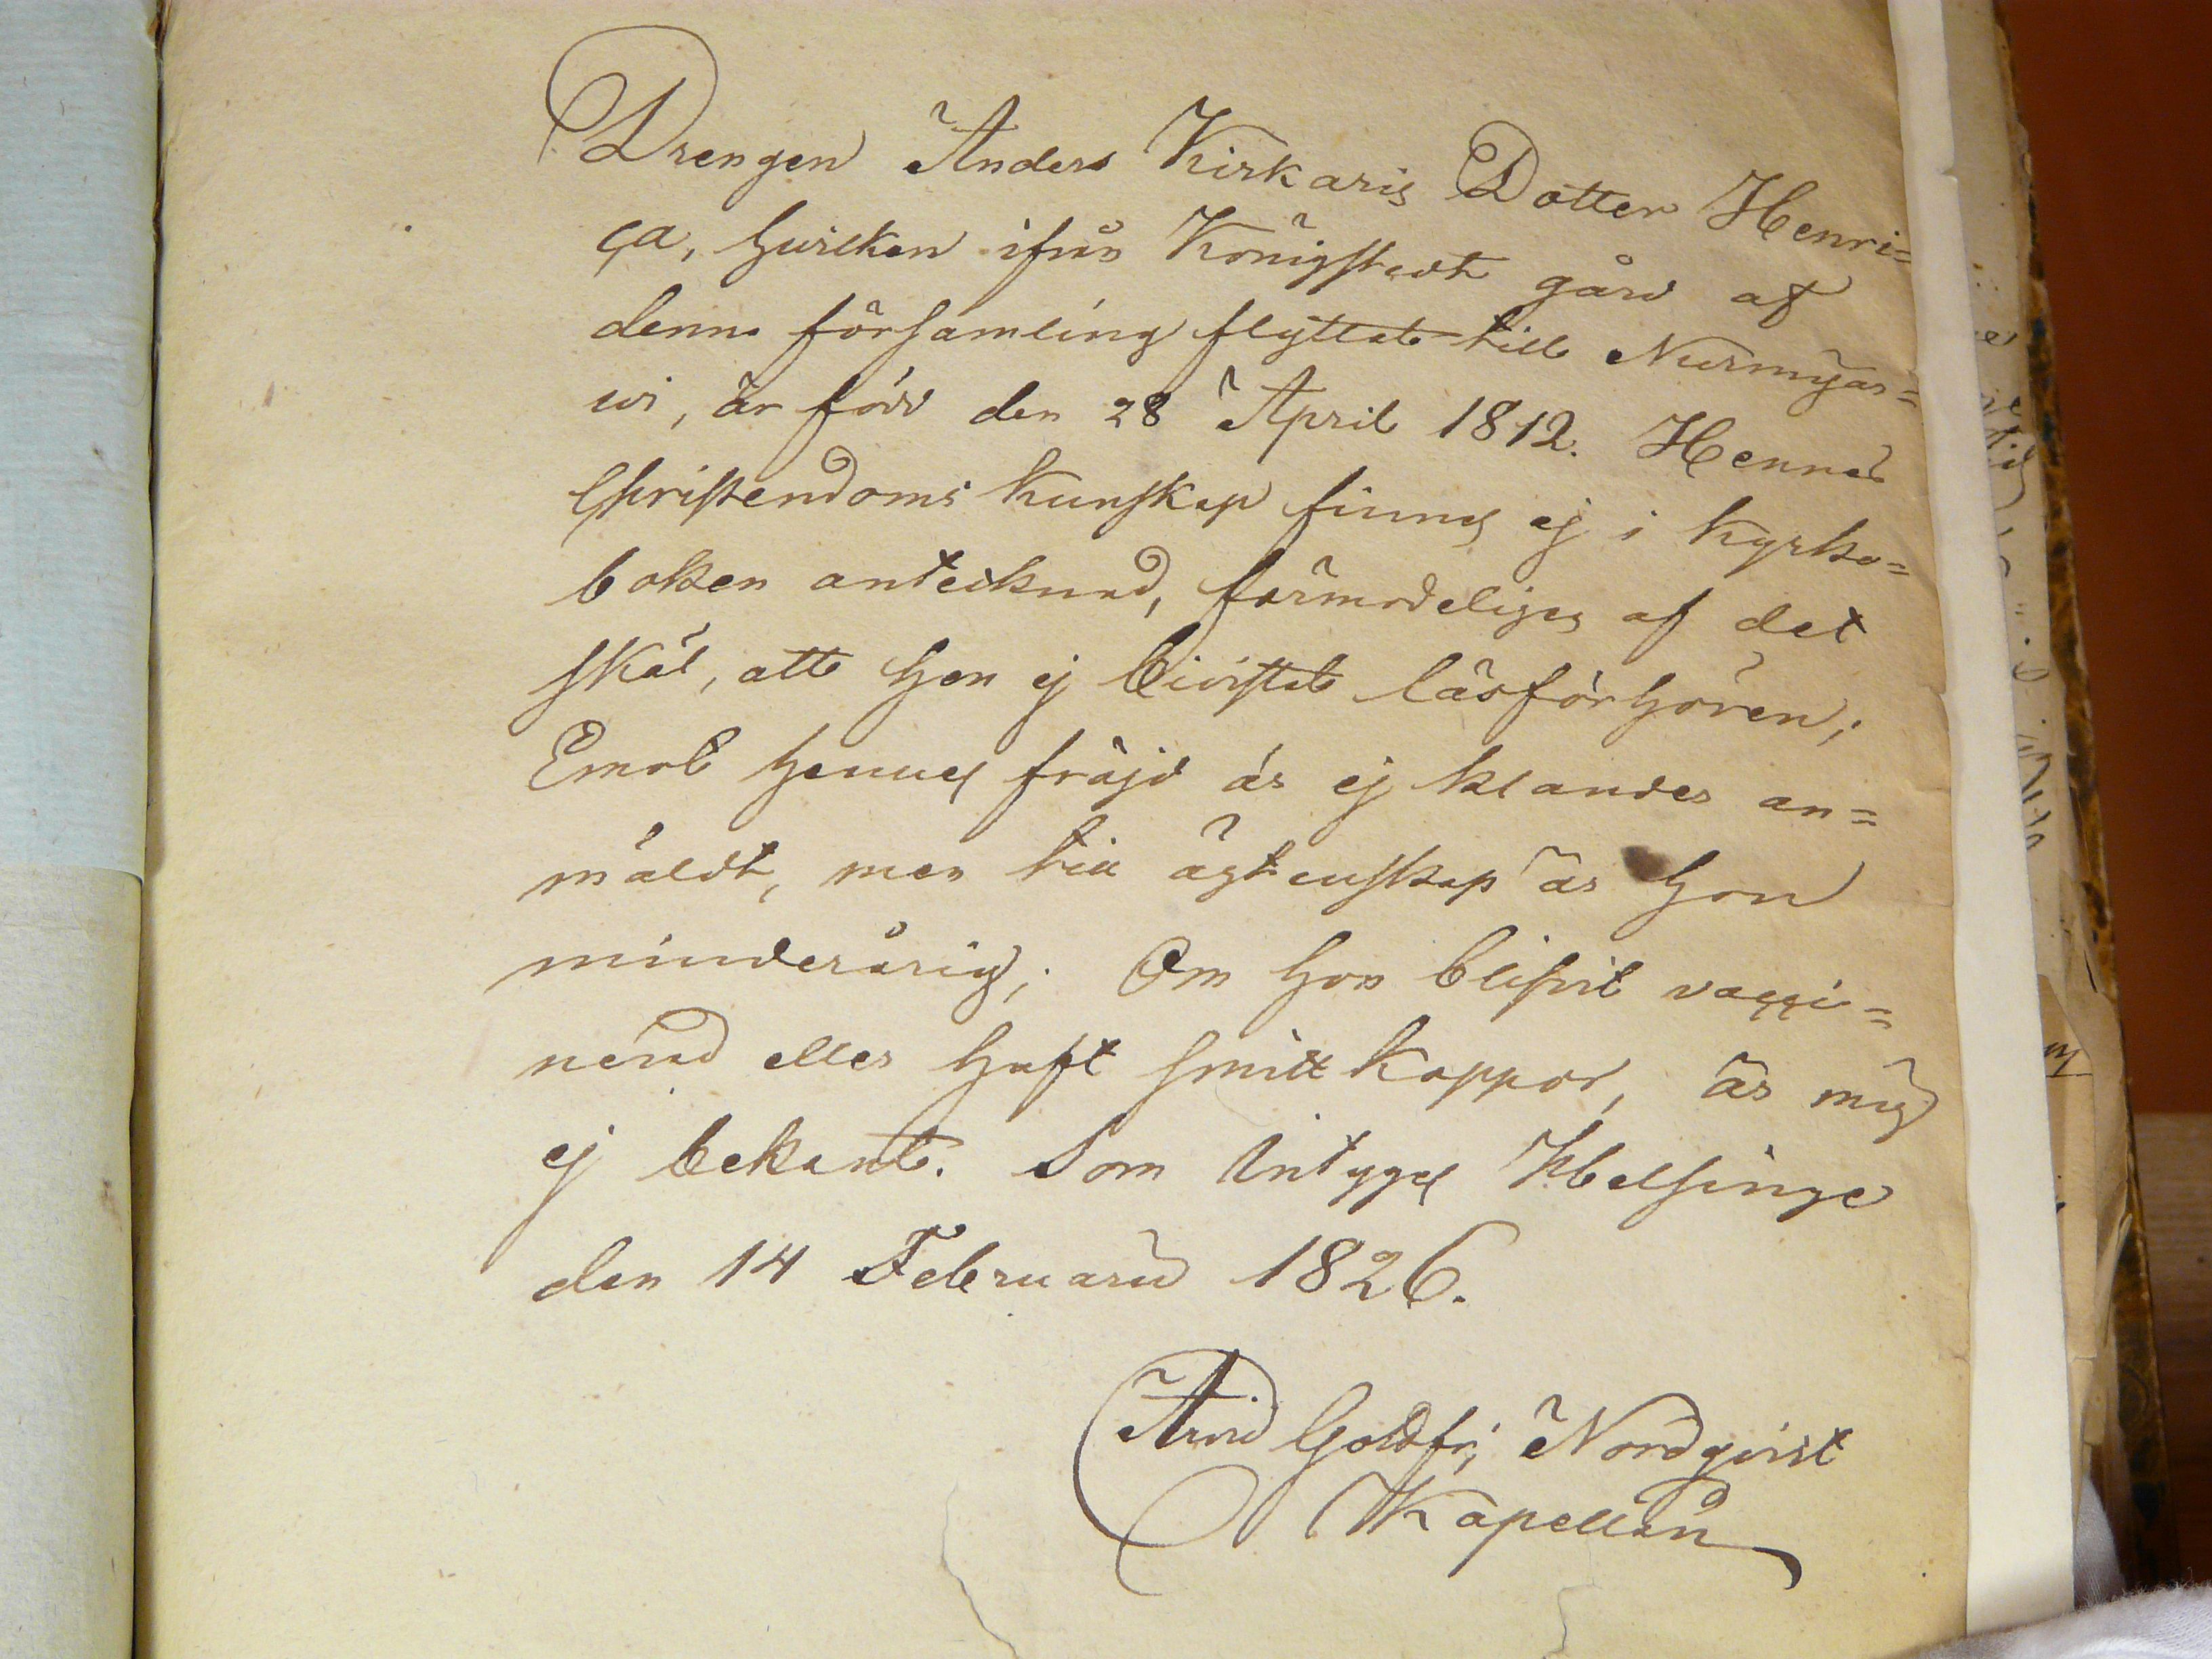 Drengen Anders Kirkaris Dotter Henri=
ca, hvilken ifrån Königstedt gård af
denna församling flyttat till Nurmijär=
wi, är född den 28 April 1812. Hennes
Christendoms kunskap finnes ej i kyrko=
boken antecknad, förmodeligen af det
skäl, att hon ej bivistat läsförhören;
Emot hennes fräjd är ej klander an=
mäldt, men till ägtenskap är hon
minderårig; Om hon blifvit vacci=
nerad eller haft smittkoppor, är mig
ej bekant. Som intygas Helsinge
den 14 Februarii 1826.
Arvid Nordqvist
Kapellan